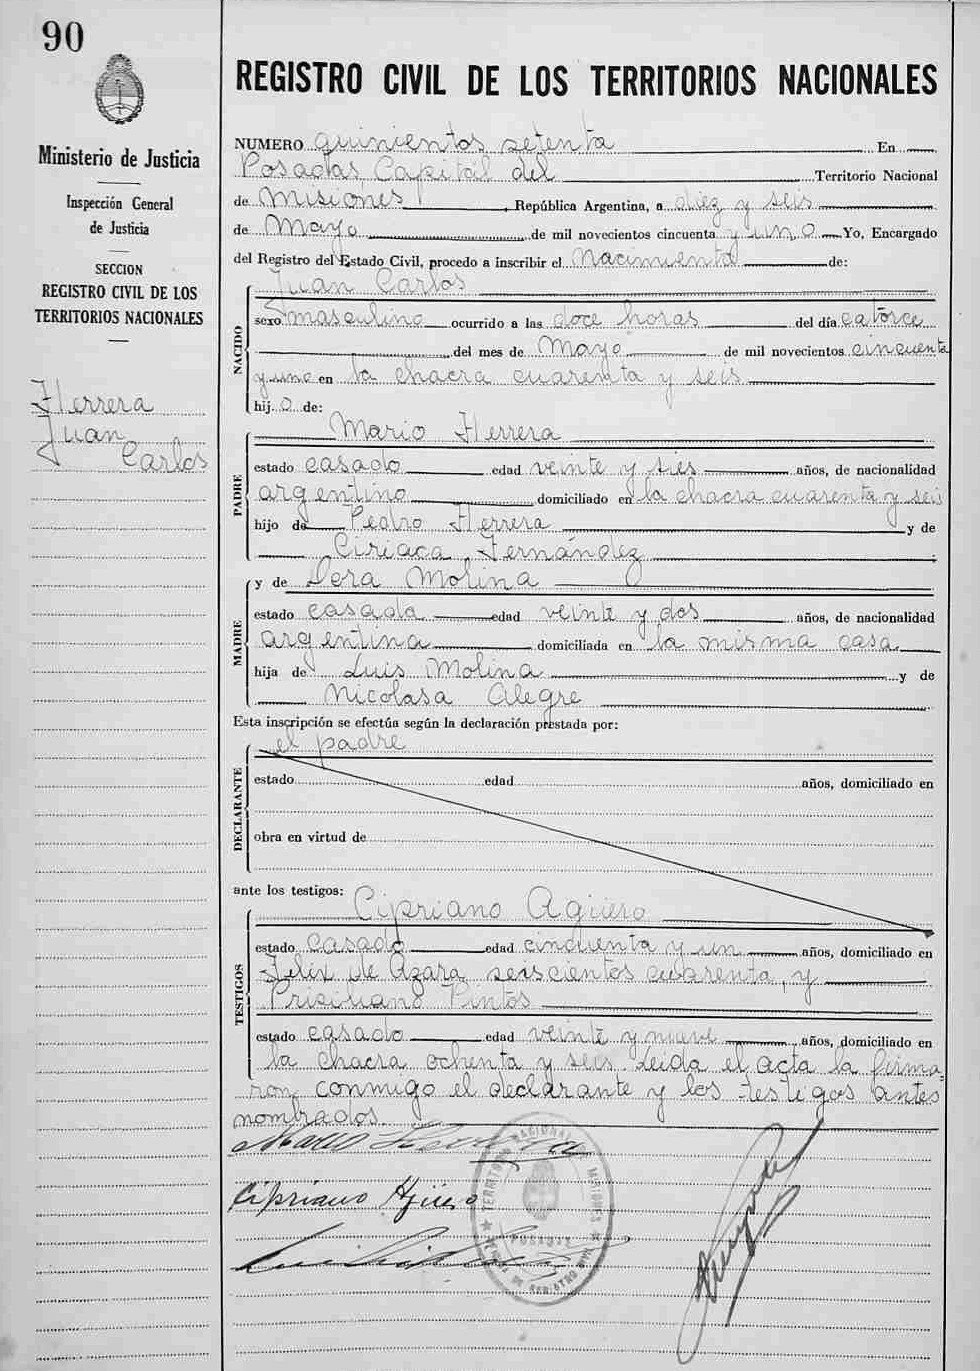 90
Ministerio de Justicia
Inspección General
de Justicia
SECCION
REGISTRO CIVIL DE LOS
TERRITORIOS NACIONALES
Herrera
Juan
Carlos
REGISTRO CIVIL DE LOS TERRITORIOS NACIONALES
NUMERO quinientos setenta En
Posadas Capital del Territorio Nacional
de Misiones, República Argentina, a diez y seis
de Mayo de mil novecientos cincuenta y uno Yo, Encargado
del Registro del Estado Civil, procedo a inscribir el Nacimiento de:
NACIDO
Juan Carlos
sexo masculino ocurrido a las doce horas del día catorce
del mes de Mayo de mil novecientos cincuenta
y uno en la chacra cuarenta y seis
hijo de:
PADRE
Mario Herrera
estado casado edad veinte y sies años, de nacionalidad
argentino domiciliado en la chacra cuarenta y seis
hijo de Pedro Herrera y de
Ciriaca Fernández
MADRE
y de Dera Molina
estado casada edad veinte y dos años, de nacionalidad
argentina domiciliada en la misma casa
hija de Luis Molina y de
Nicolasa Alegre
Esta inscripción se efectúa según la declaración prestada por:
DECLARANTE
el padre
estado edad años, domiciliado en
obra en virtud de
ante los testigos:
TESTIGOS
Cipriano Agüero
estado casado edad cincuenta y un años, domiciliado en
Felix de Azara seiscientos cuarenta, y
Prisiliano Pintos
estado casado edad veinte y nueve años, domiciliado en
la chacra ochenta y seis. Leida el acta la firma-
ron conmigo el declarante y los testigos antes
nombrados.
Mario Herrera
Cipriano Agüero
TERRITORIO NACIONAL MISIONES
POSADAS